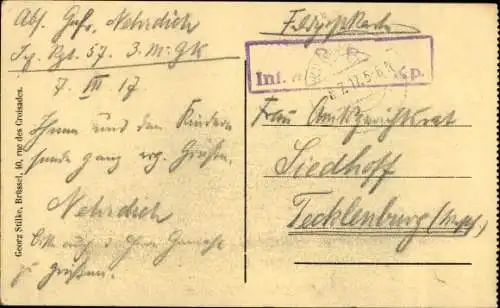 Abs. Gefr. Nehrdich
Inf. Rgt. 57. 3. M. G. K.
7. III 17.
Ihnen und den Kindern
sende ganz erg. Grüße.
Nehrdich
Bitte auch
zu grüßen.
Georg Stilke, Brüssel, 40, rue des Croisades.
Feldpostkarte
Inf.
Frau Amtsgerichtsrat
Siedhoff
Tecklenburg (Westf.)